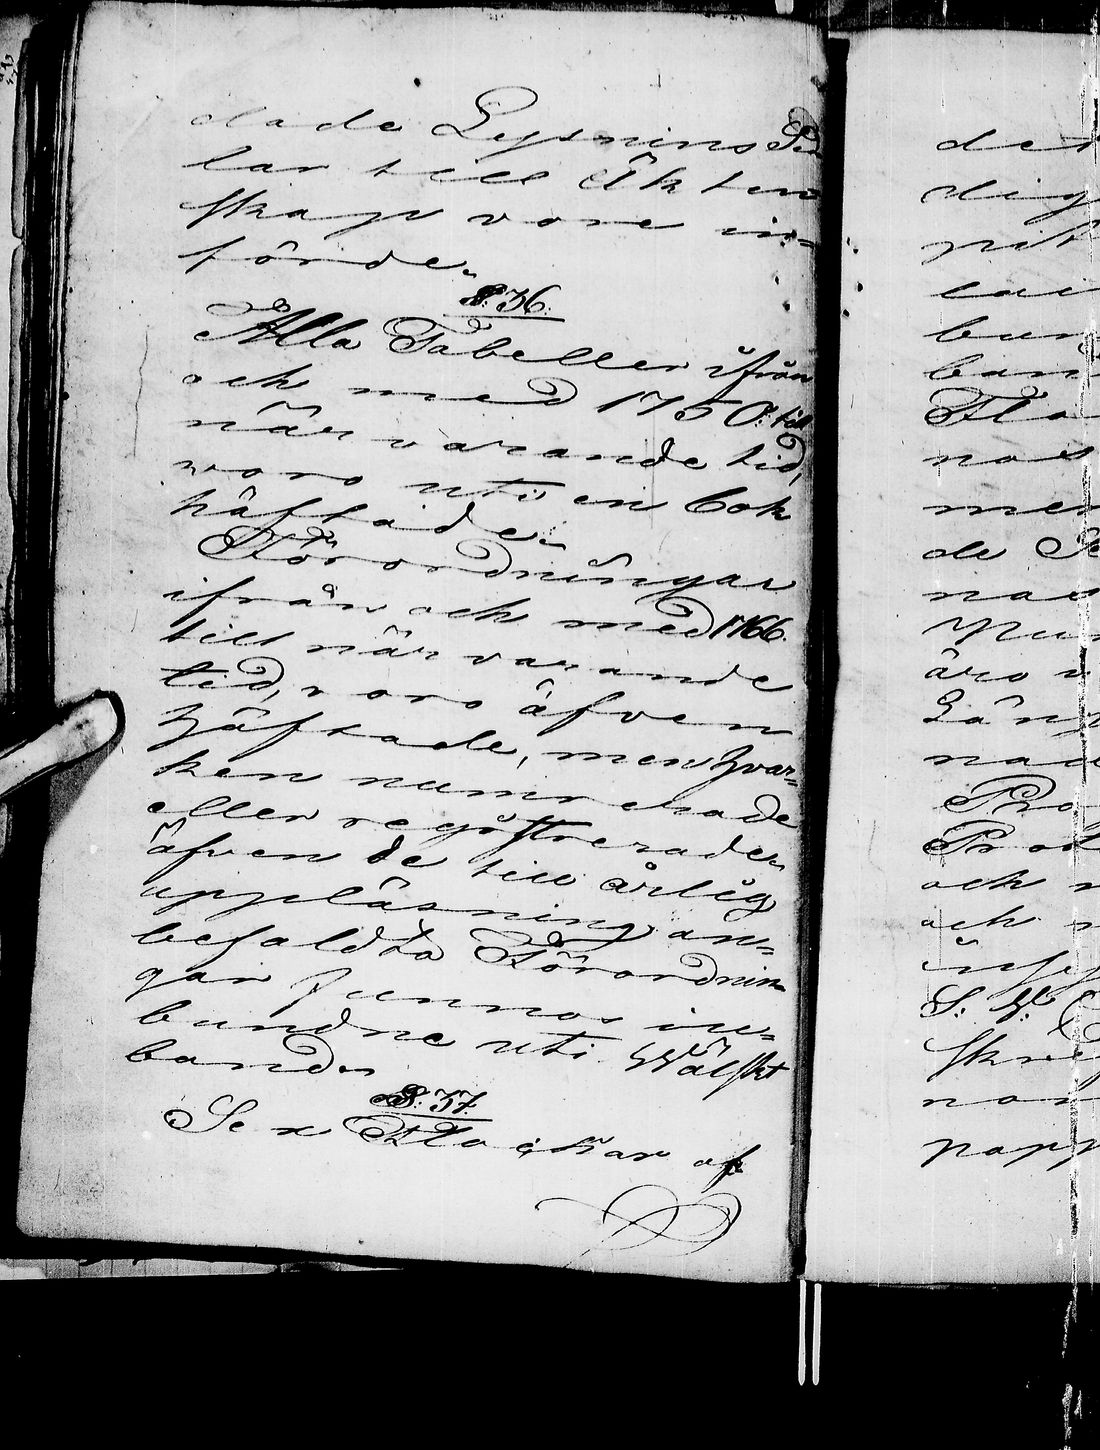 dade Lysnins Sed
lar till Äkten
skap vore in=
förde.
§: 36.
Alla Tabeller ifrån
och med 1750: till
när varande tid,
woro uti en bok
häftade.
Förordningar
ifrån och med 1766.
till när varande
tid, voro äfven
häftade, men hvar=
ken numrerade
eller regöstrerade.
äfven de till årlig
uppläsning an=
befaldta Förordnin
gar funnos in=
bundne uti Wälskt
band.
§: 37.
Sex Flockar af
det
dig
pit
bun
ban
Flo
nos
men
de
nas
äro
nad
Pro
och
och
S:
skrif
nor
papp